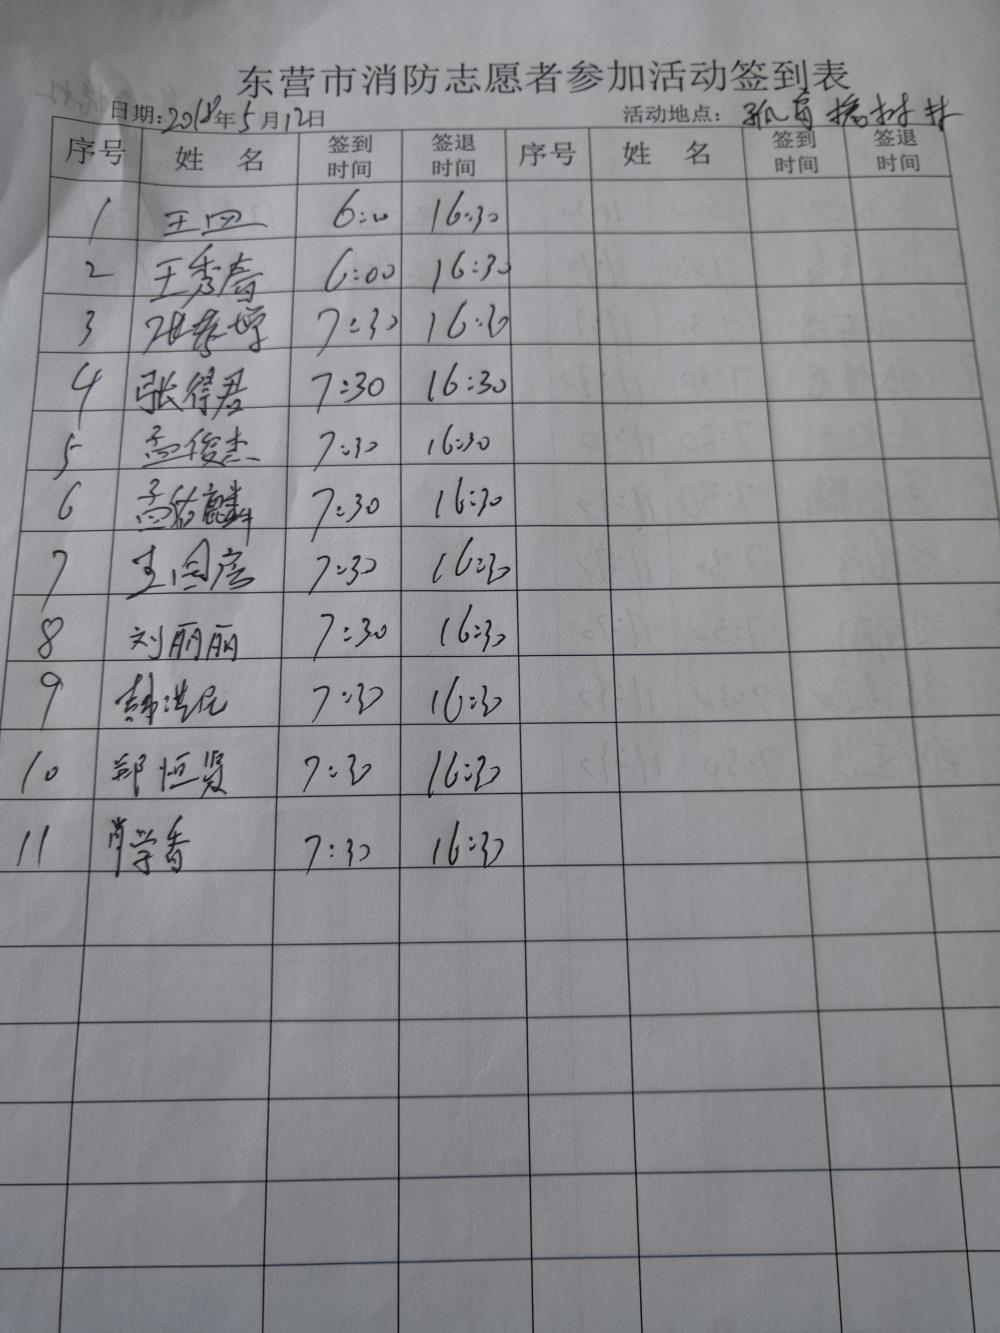 东营市消防志愿者参加活动签到表
日期:2018年5月12日 活动地点: 孤岛槐树林
序号 姓名 签到时间 签退时间 序号 姓名 签到时间 签退时间
1 王四 6:00 16:30
2 王秀春 6:00 16:30
3 16:30 7:30
4 张得君 7:30 16:30
5 孟俊杰 7:30 16:30
6 孟佑麟 7:30 16:30
7 7:30 16:30
8 刘丽丽 7:30 16:30
9 韩洪民 7:30 16:30
10 郑恒贤 7:30 16:30
11 肖学香 7:30 16:30